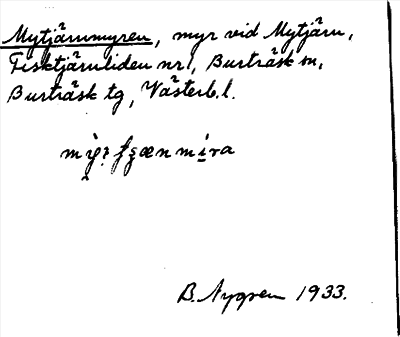 Mytjärnmyren, myr vid Mytjärn,
Fisktjärnliden nr 1, Burträsk sn,
Burträsk tg, Västerb. l.
B. Nygren 1933.